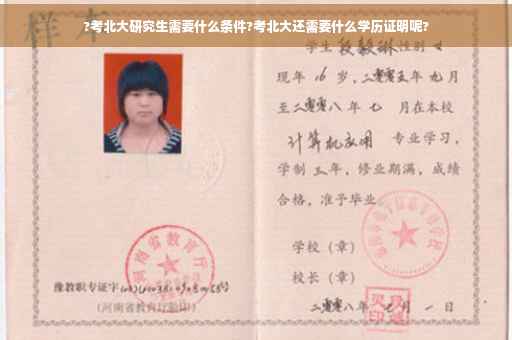 ?考北大研究生需要什么条件?考北大还需要什么学历证明呢?
样本
学生段毅琳性别女
现年16岁,二零零五年九月
至二零零八年七月在本校
计算机应用 专业学习,
学制三年,修业期满,成绩
合格,准予毕业
学校(章)
校长(章)
二零零八年七月一日
河南省教育厅
豫教职专证字
(河南省教育厅验印)